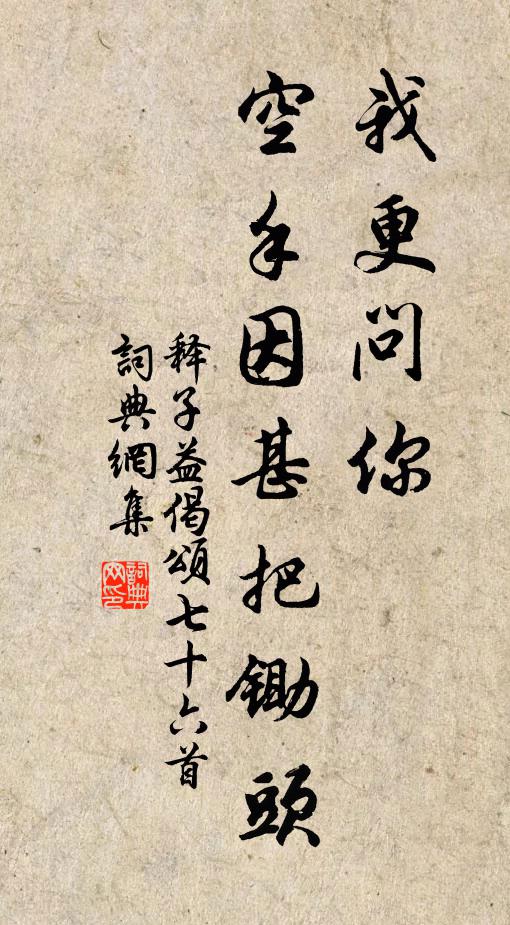 我更问你
空手因甚把锄頭
释子益偈頌七十六首
詞典網集
詞典网印